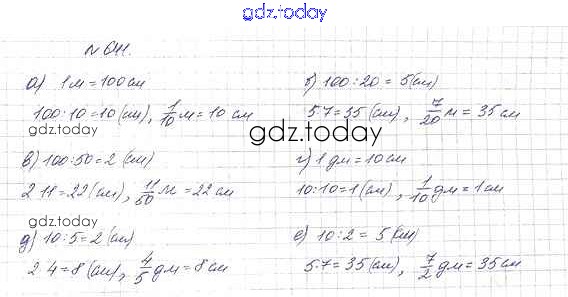 gdz.today
№ 641.
а) 1м = 100 см
100:10=10 (см), 1/10 м = 10 см
gdz.today
б) 100:20 = 5 (см)
5·7=35 (см), 7/20 м = 35 см
gdz.today
в) 100:50=2 (см)
2·11=22 (см), 11/50 м = 22 см
г) 1 дм = 10 см
10:10=1 (см), 1/10 дм = 1 см
gdz.today
д) 10:5=2 (см)
2·4=8 (см), 4/5 дм = 8 см
е) 10:2 = 5 (см)
5·7=35 (см), 7/2 дм = 35 см